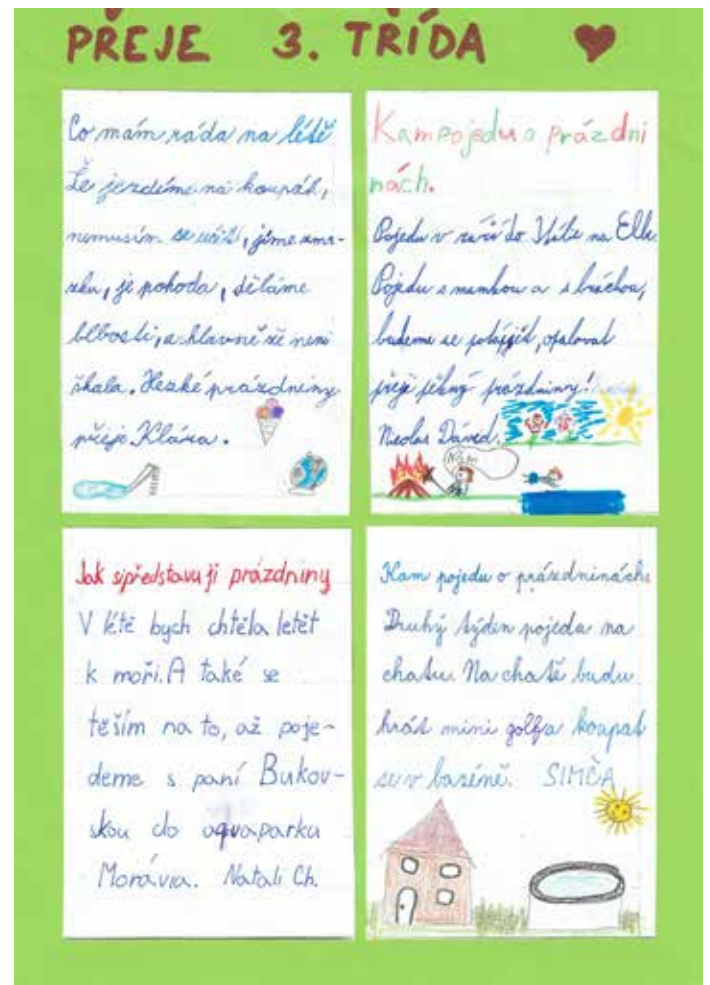 PŘEJE 3. TŘÍDA
Co mám ráda na létě
Že jezdíme na koupák,
nemusím se učit, jíme zmr-
zku, je pohoda, děláme
blbosti, a hlavně že není
škala. Hezké prázdniny
přeje Klára.
Kam pojedu o prázdni
nách.
Pojedu v září do Itálie na Elbu
Pojedu s mamkou a s bráchou,
budeme se potápjět, opalovat
přeji pěkný prázdniny!
Nicolas Dáved.
Jak sipředstavuji prázdniny
V létě bych chtěla letět
k moři. A také se
těším na to, až poje-
deme s paní Bukov-
skou do aquaparku
Morávia. Natali Ch.
Kam pojedu o prázdninách.
Druhý týden pojedu na
chatu. Na chatě budu
hrát mini golf a koupat
se v bazéně. SIMČA